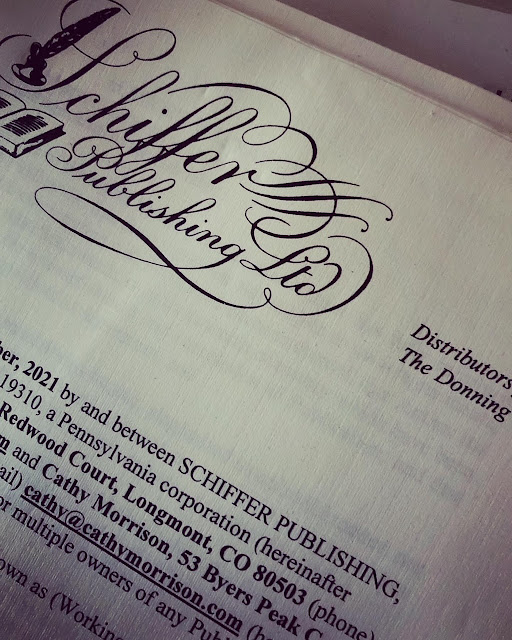 Schiffer
Publishing Ltd
Distributors
The Donning
ber, 2021 by and between SCHIFFER PUBLISHING,
19310, a Pennsylvania corporation (hereinafter
Redwood Court, Longmont, CO 80503 (phone)
m and Cathy Morrison, 53 Byers Peak C
ail) cathy@cathymorrison.com (he
or multiple owners of any Publ
own as (Working